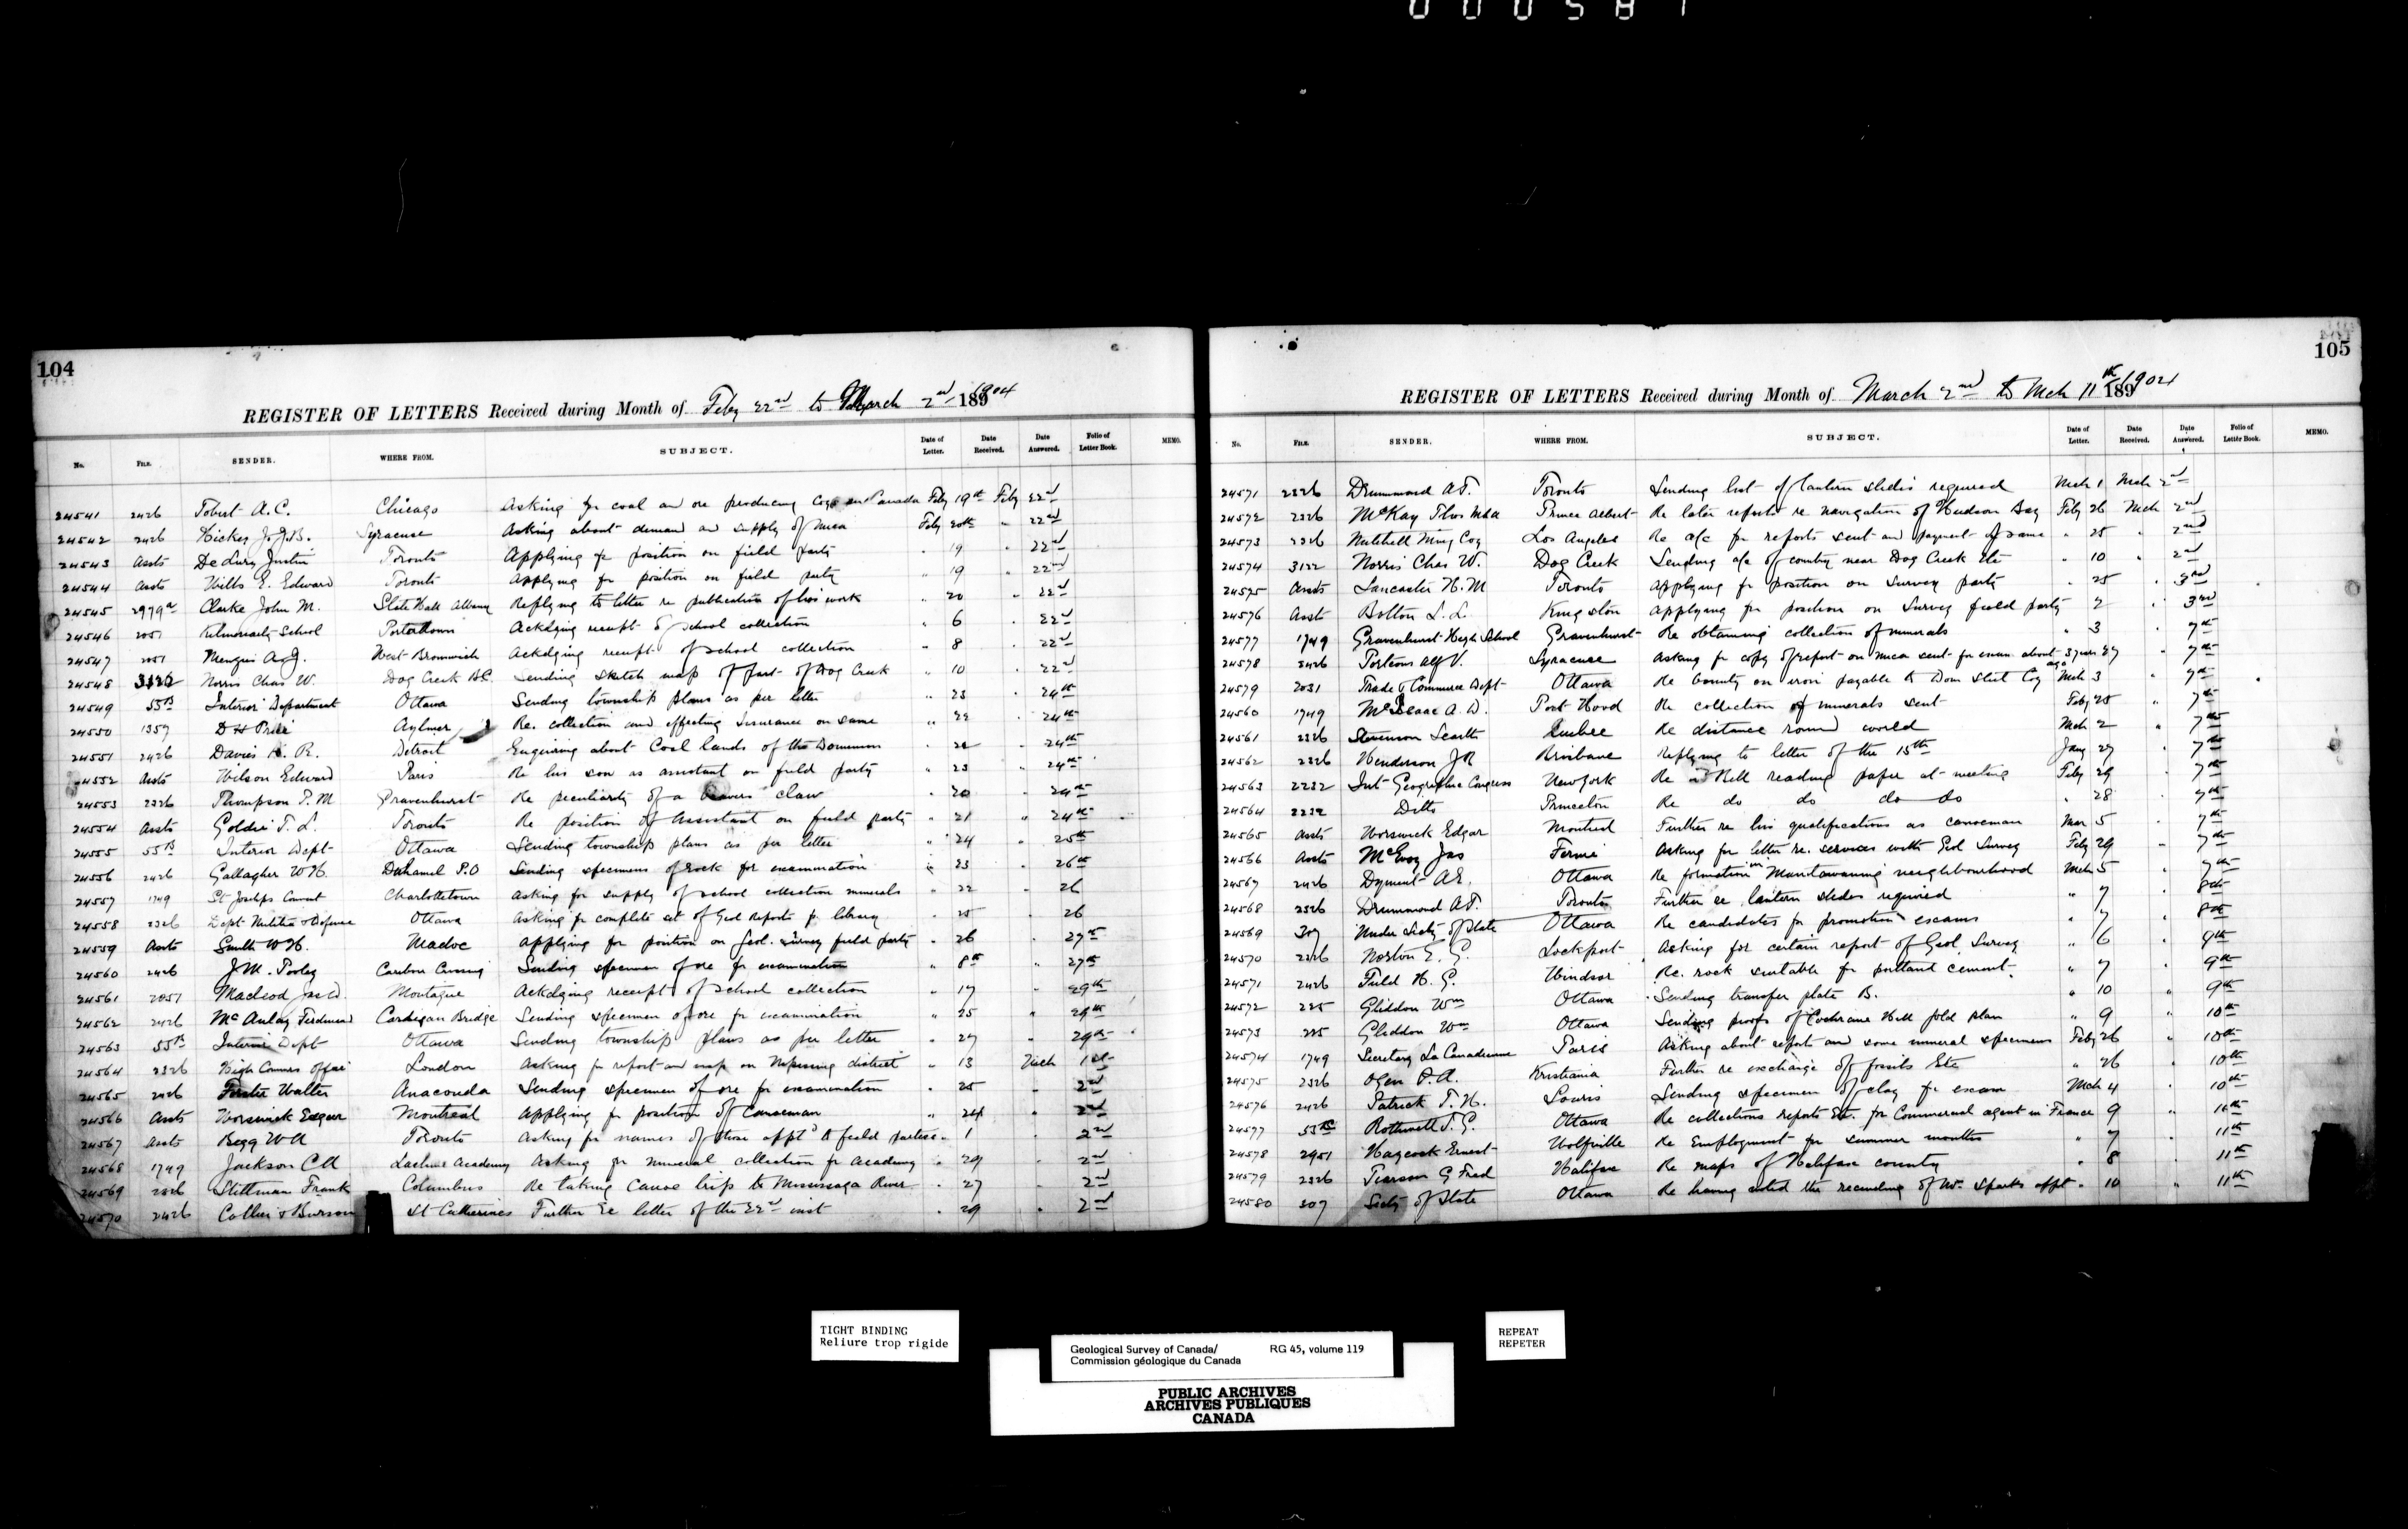 000587
104
REGISTER OF LETTERS Received during Month of Feby 22nd to March 2nd 1904
No. FILE. SENDER. WHERE FROM. SUBJECT. Date of Letter. Date Received. Date Answered. Folio of Letter Book. MEMO.
24541 2426 Tobert A.C. Chicago Asking for coal and ore producing Coys in Canada Feby 19th Feby 22nd
24542 2426 Hickey J.J.B. Syracuse Asking about demand and supply of mica Feby 20th " 22nd
24543 Assts De Lury Justin Toronto Applying for position on field party " 19 " 22nd
24544 Assts Wilbs E. Edward Toronto Applying for position on field party " 19 " 22nd
24545 2979a Clarke John M. State Hall Albany Replying to letter re publication of his work " 20 " 22nd
24546 2051 School Portadown Ackdging receipt of school collection " 6 " 22nd
24547 2051 Menzies A.J. West Bromwich Ackdging receipt of school collection " 8 " 22nd
24548 3122 Norris Chas W. Dog Creek B.C. Sending sketch map of part of Dog Creek " 10 " 22nd
24549 55B Interior Department Ottawa Sending township plans as per letter " 23 " 24th
24550 1357 D H Price Aylmer Re. collection and effecting Insurance on same " 22 " 24th
24551 2426 Davis R. Detroit Enquiring about Coal lands of the Dominion " 22 " 24th
24552 Assts Wilson Edward Paris Re his son as assistant on field party " 23 " 24th
24553 2326 Thompson P.M Gravenhurst Re peculiarity of a Beavers claw " 20 " 24th
24554 Assts Goldie T. L. Toronto Re position of Assistant on field party " 21 " 24th
24555 55B Interior Dept Ottawa Sending township plans as per letter " 24 " 25th
24556 2426 Gallagher W H. Duhamel P.O Sending specimens of rock for examination " 23 26th
24557 1749 St Josephs Convent Charlottetown Asking for supply of school collection minerals " 22 " 26
24558 2326 Dept Militia & Defense Ottawa Asking for complete set of Geol Reports for library " 25 " 26
24559 Assts Smith W H. Madoc Applying for position on Geol. Survey field party " 26 " 27th
24560 2426 J.M. Pooley Caribou Crossing Sending specimen of ore for examination " 8th " 27th
24561 2051 Macleod Jas D. Montague Ackdging receipt of school collection " 17 " 29th
24562 2426 McAulay Ferdinand Cardigan Bridge Sending specimen of ore for examination " 25 " 29th
24563 55B Interior Dept Ottawa Sending township plans as per letter " 27 " 29th
24564 2326 High Commrs Office London Asking for report and map on Nipissing district " 13 Mch 1st
24565 2426 Foster Walter Anaconda Sending specimen of ore for examination " 25 " 2nd
24566 Assts Worswick Edgar Montreal Applying for position of Canoeman " 24 " 2nd
24567 Assts Begg W A Toronto Asking for names of those apptd to field parties " 1 " 2nd
24568 1749 Jackson C A Lachute Academy Asking for mineral collection for Academy " 29 " 2nd
24569 2326 Stillman Frank Columbus Re taking Canoe trip to Mississaga River " 27 " 2nd
24570 2426 Collier & Burson St Catherines Further re letter of the 22nd inst " 29 " 2nd
105
REGISTER OF LETTERS Received during Month of March 2nd to Mch 11th 1904
No. FILE. SENDER. WHERE FROM. SUBJECT. Date of Letter. Date Received. Date Answered. Folio of Letter Book. MEMO.
24571 2326 Drummond A.T. Toronto Sending list of lantern slides required Mch 1 Mch 2nd
24572 2326 McKay Thos MLA Prince Albert Re later reports re navigation of Hudson Bay Feby 26 Mch 2nd
24573 2326 Mitchell Ming Coy Los Angeles Re a/c for reports sent and payment of same " 25 " 2nd
24574 3122 Norris Chas W. Dog Creek Sending a/c of country near Dog Creek etc " 10 " 2nd
24575 Assts Lancaster H.M Toronto Applying for position on Survey party " 25 " 3rd
24576 Asst Bolton L.L. Kingston Applying for position on Survey field party " 2 " 3rd
24577 1749 Gravenhurst High School Gravenhurst Re obtaining collection of minerals " 3 7th
24578 2426 Porteous Alf V. Syracuse Asking for copy of report on mica sent for exam about 3 years ago 27 " 7th
24579 2031 Trade & Commerce Dept Ottawa Re bounty on iron payable to Dom Steel Coy Mch 3 " 7th
24560 1749 McIsaac A.D. Port Hood Re collection of minerals sent Feby 25 " 7th
24561 2326 Stevenson Scarth Quebec Re distance round world Mch 2 " 7th
24562 2326 Henderson J R Brisbane Replying to letter of the 15th Jany 27 " 7th
24563 2232 Int Geographic Congress New York Re Bell reading paper at meeting Feby 29 " 7th
24564 2232 Ditto Princeton Re do do do do " 28 " 7th
24565 Assts Worswick Edgar Montreal Further re his qualifications as canoeman Mar 5 " 7th
24566 Assts McEvoy Jas Fernie Asking for letter re. services with Geol Survey Feby 29 " 7th
24567 2426 Dyment A.E. Ottawa Re formation in Manitowaning neighbourhood Mch 5 " 7th
24568 2326 Drummond A.T. Toronto Further re lantern slides required " 7 " 8th
24569 307 Under Secty of State Ottawa Re candidates for promotion exams " 7 " 8th
24570 2326 Norton E. G. Lockport Asking for certain report of Geol Survey " 6 " 9th
24571 2426 Field H. G. Windsor Re. rock suitable for portland cement " 7 " 9th
24572 225 Gliddon Wm Ottawa Sending transfer plate B. " 10 " 9th
24573 225 Gliddon Wm Ottawa Sending proofs of Cochrane Hill gold plan " 9 " 10th
24574 1749 Secretary La Canadienne Paris Asking about report and some mineral specimens Feby 26 " 10th
24575 2326 Oyen P.A. Kristiania Further re exchange of fossils Etc " 26 " 10th
24576 2426 Patrick T.H. Souris Sending specimen of clay for exam Mch 4 " 10th
24577 Rothwell T.G. Ottawa Re collections reports Etc. for Commercial agent in France 9 " 10th
24578 2951 Haycock Ernest Wolfville Re Employment for summer months " 7 " 11th
24579 2326 Pearson G Fred Halifax Re maps of Halifax county " 8 " 11th
24580 307 Secty of State Ottawa Re having asked the rescinding of Wm Sparks appt " 10 " 11th
TIGHT BINDING
Reliure trop rigide
REPEAT
REPETER
Geological Survey of Canada/ RG 45, volume 119
Commission géologique du Canada
PUBLIC ARCHIVES
ARCHIVES PUBLIQUES
CANADA